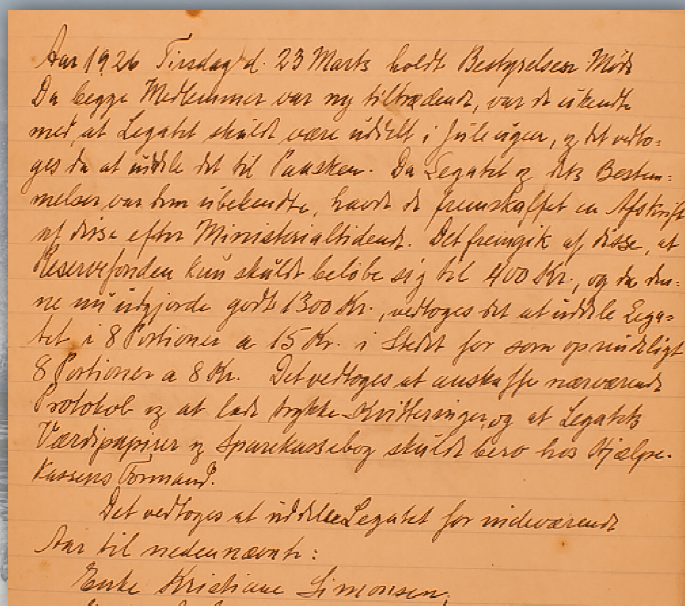 Aar 1926 Tirsdag d. 23 Marts holdt Bestyrelsen Møde
Da begge Medlemmer var ny tiltrædende, var de ukendte
med, at Legatet skulde være uddelt i Juleugen, og det vedto-
ges da at uddele det til Paasken. Da Legatet og dets Bestem-
melser var dem ubekendte, havde de fremskaffet en Afskrift
af disse efter Ministerialtidende. Det fremgik af disse, at
Reservefonden kun skulde beløbe sig til 400 Kr., og da den-
ne nu udgjorde godt 1300 Kr., vedtoges det at uddele Lega-
tet i 8 Portioner a 15 Kr. i Stedet for som oprindeligt
8 Portioner a 8 Kr. Det vedtoges at anskaffe nærværende
Protokol og at lade trykke Kvitteringer, og at Legatets
Værdipapirer og Sparekassebog skulde bero hos Hjælpe-
kassens Formand.
Det vedtoges at uddele Legatet for indeværende
Aar til nedennævnte:
Enke Kristiane Simonsen,